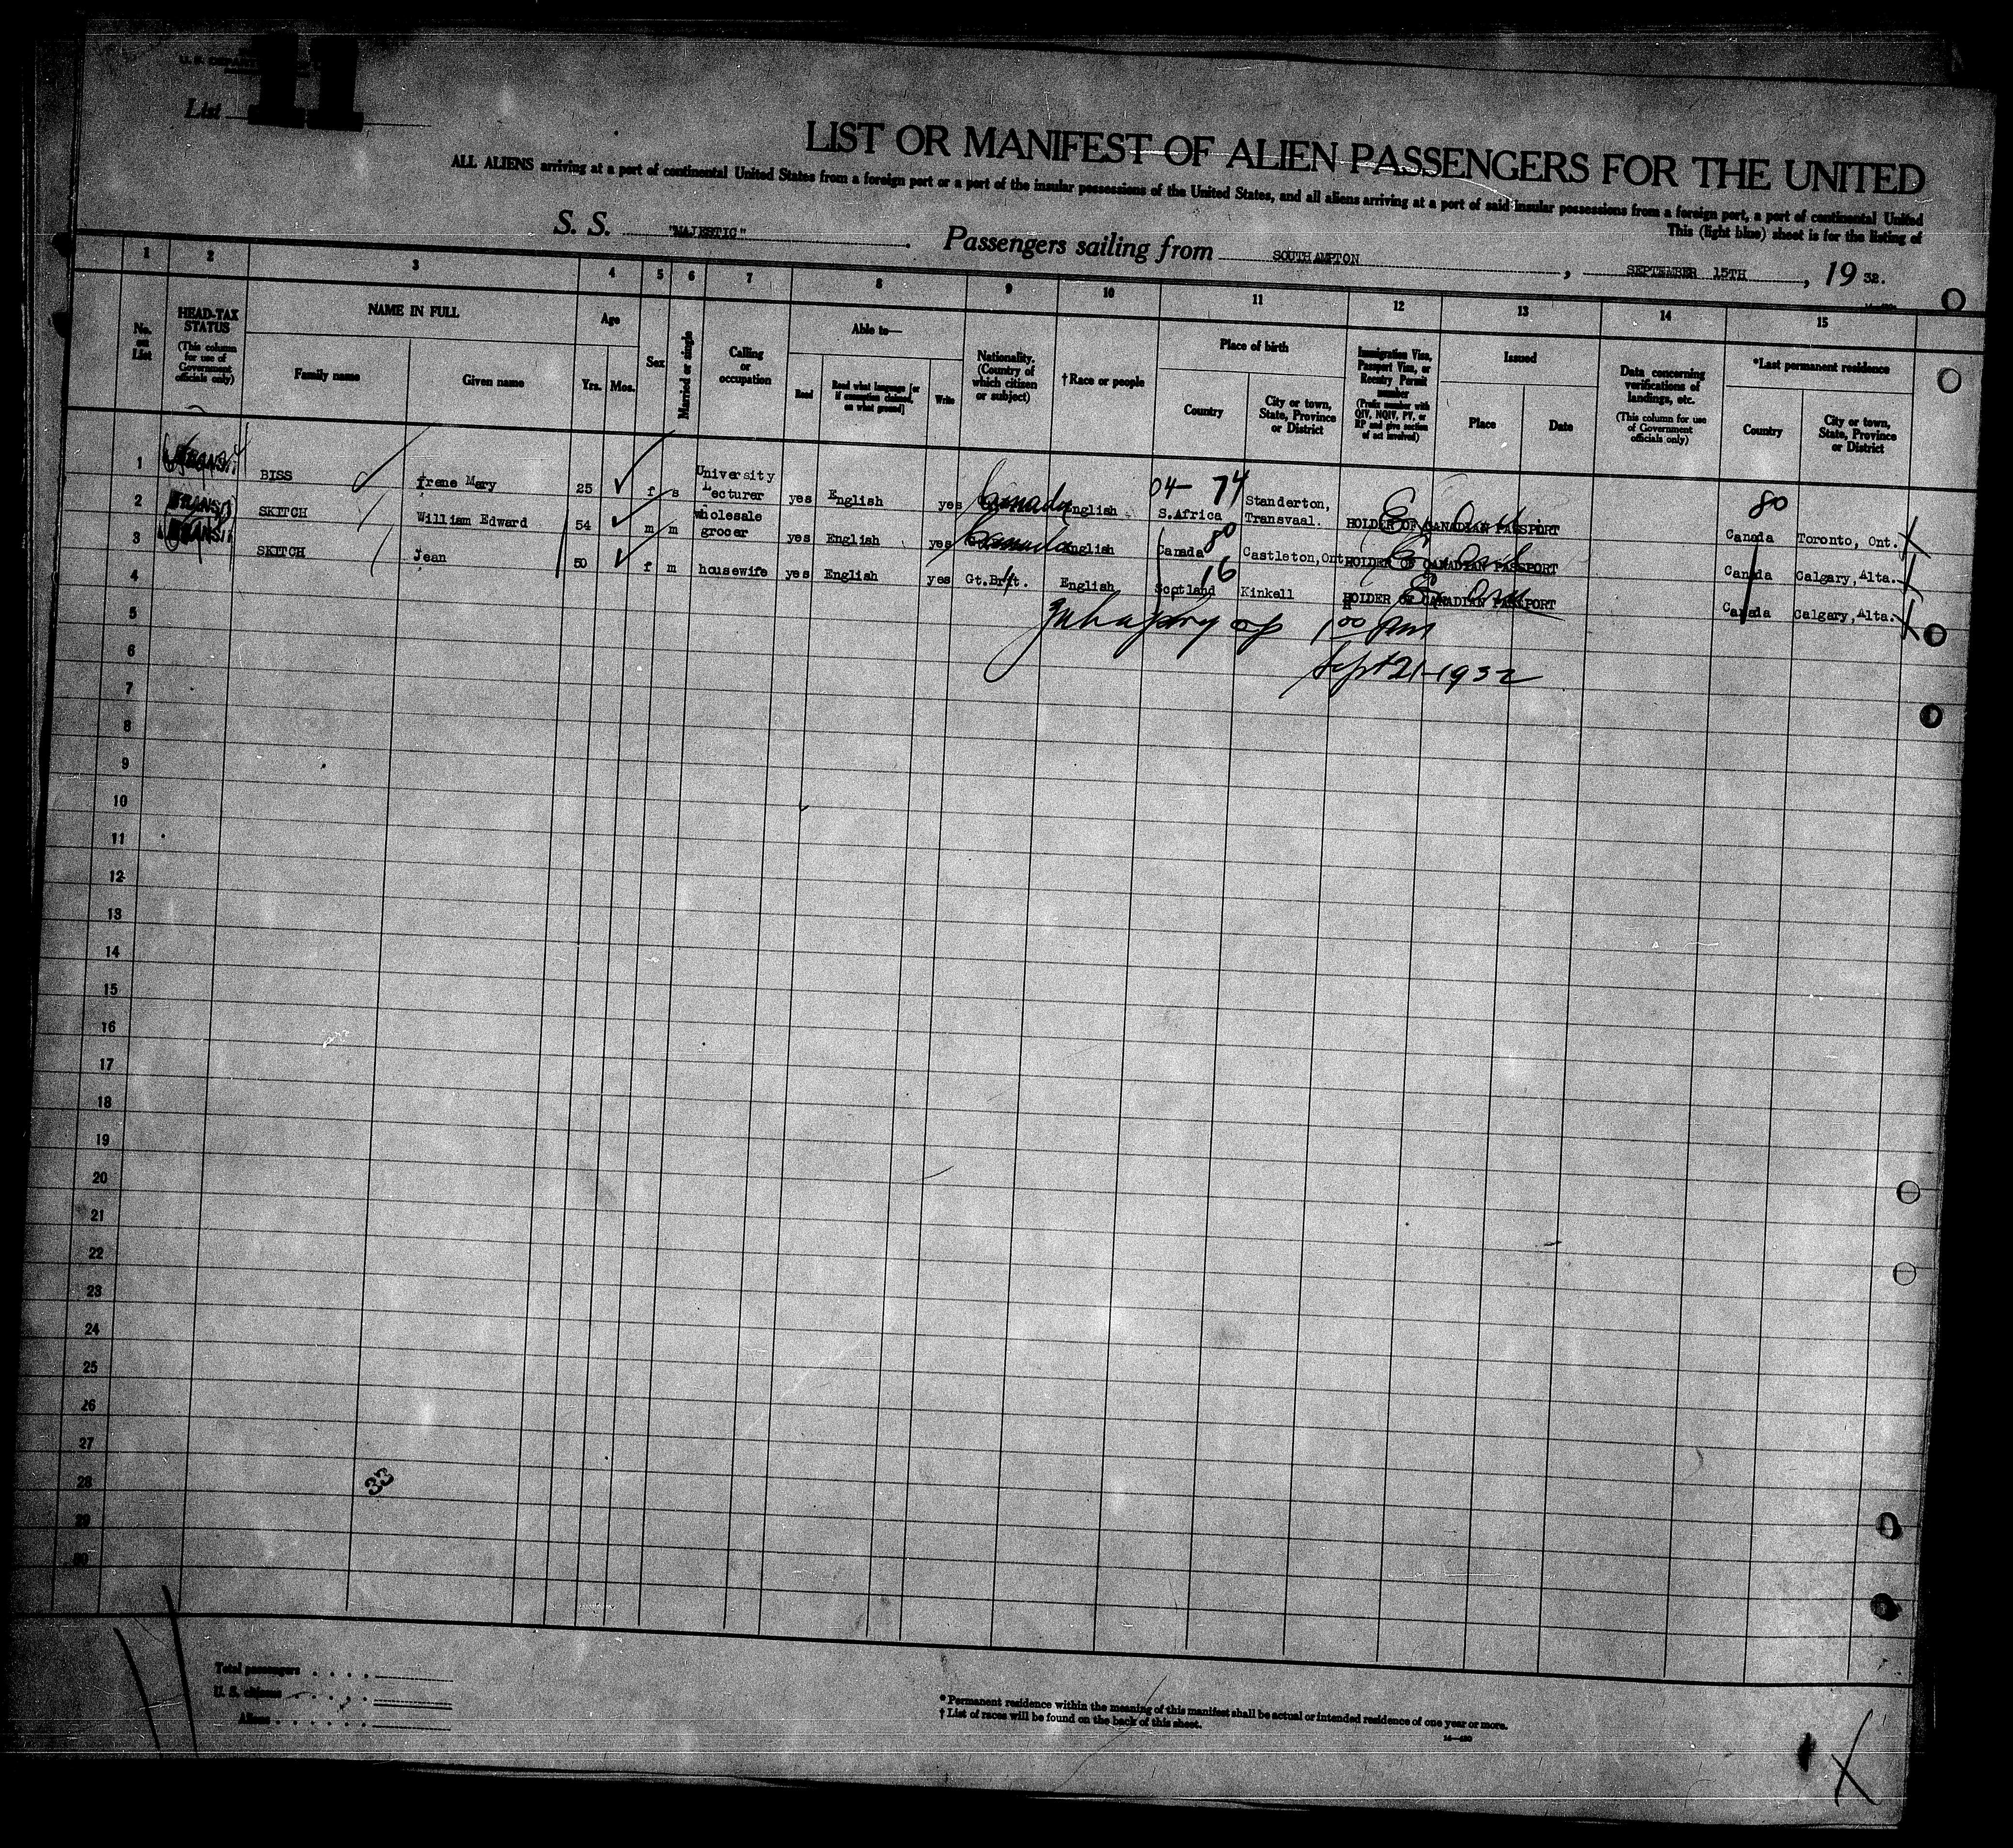 11
List
LIST OR MANIFEST OF ALIEN PASSENGERS FOR THE UNITED
ALL ALIENS arriving at a port of continental United States from a foreign port or a port of the insular possessions of the United States, and all aliens arriving at a port of said insular possessions from a foreign port, a port of continental United
This (light blue) sheet is for the listing of
S. S. "MAJESTIC". Passengers sailing from SOUTHAMPTON, SEPTEMBER 15TH, 19 32.
1 2 3 4 5 6 7 8 9 10 11 12 13 14 15
No. on List
HEAD-TAX STATUS (This column for use of Government officials only)
NAME IN FULL
Family name
Given name
Age
Yrs. Mos.
Sex
Married or single
Calling or occupation
Able to—
Read
Read what language [or if exemption claimed, on what ground]
Write
Nationality. (Country of which citizen or subject)
†Race or people
Place of birth
Country
City or town, State, Province or District
Immigration Visa, Passport Visa, or Reentry Permit number (Prefix number with QIV, NQIV, PV, or RP and give section of act involved)
Issued
Place
Date
Data concerning verifications of landings, etc. (This column for use of Government officials only)
*Last permanent residence
Country
City or town, State, Province or District
1 TRANSIT BISS Irene Mary 25 f s University Lecturer yes English yes Canada English 04- 74 S.Africa Standerton, Transvaal. HOLDER OF CANADIAN PASSPORT 80 Canada Toronto, Ont.
2 TRANSIT SKITCH William Edward 54 m m wholesale grocer yes English yes Canada English Canada 80 Castleton,Ont HOLDER OF CANADIAN PASSPORT Canada Calgary,Alta.
3 TRANSIT SKITCH Jean 50 f m housewife yes English yes Gt.Brit. English Scotland 16 Kinkell HOLDER OF CANADIAN PASSPORT Canada Calgary,Alta.
4
5 1 00 pm
6 Sept 21-1932
7
8
9
10
11
12
13
14
15
16
17
18
19
20
21
22
23
24
25
26
27
28 33
29
30
Total passengers
U. S. citizens
Aliens
* Permanent residence within the meaning of this manifest shall be actual or intended residence of one year or more.
† List of races will be found on the back of this sheet.